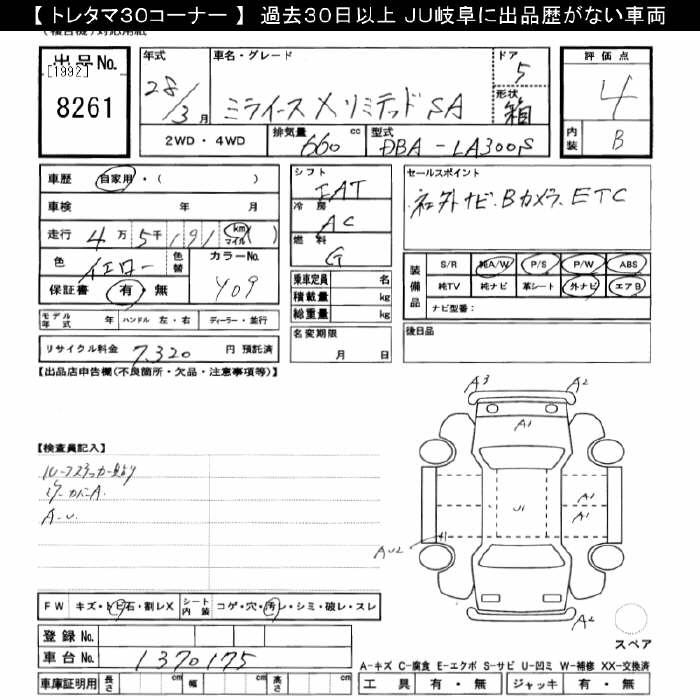 【 トレタマ30コーナー 】 過去30日以上 JU岐阜に出品歴がない車両
出品No. [1992] 8261
年式 28/3月
車名・グレード ミライース X リミテッド SA
ドア 5
形状 箱
評価点 4
内装 B
2WD・4WD
排気量 660 cc
型式 DBA-LA300S
車歴 自家用・( )
車検 年 月
走行 4万 5千 191 km マイル ( )
色 イエロー 色替
カラーNo. Y09
保証書 有・無
シフト FAT
冷房 AC
燃料 G
乗車定員 名
積載量 kg
総重量 kg
セールスポイント
社外ナビ、Bカメラ、ETC
装備品 S/R 純A/W P/S P/W ABS
純TV 純ナビ 革シート 外ナビ エアB
ナビ型番:
モデル年式 年 ハンドル 左・右 ディーラー・並行
リサイクル料金 7,320 円 預託済
名変期限 月 日
後日品
【出品店申告欄(不良箇所・欠品・注意事項等)】
【検査員記入】
A-U
A3 A2
A1
A1
U1 A1
AU2
A2
スペア
FW キズ・トビ石・割レX シート内装 コゲ・穴・汚レ・シミ・破レ・スレ
登録No.
車台No. 1370175
A-キズ C-腐食 E-エクボ S-サビ U-凹ミ W-補修 XX-交換済
車庫証明用 長さ cm 幅 cm 高さ cm
工具 有・無 ジャッキ 有・無